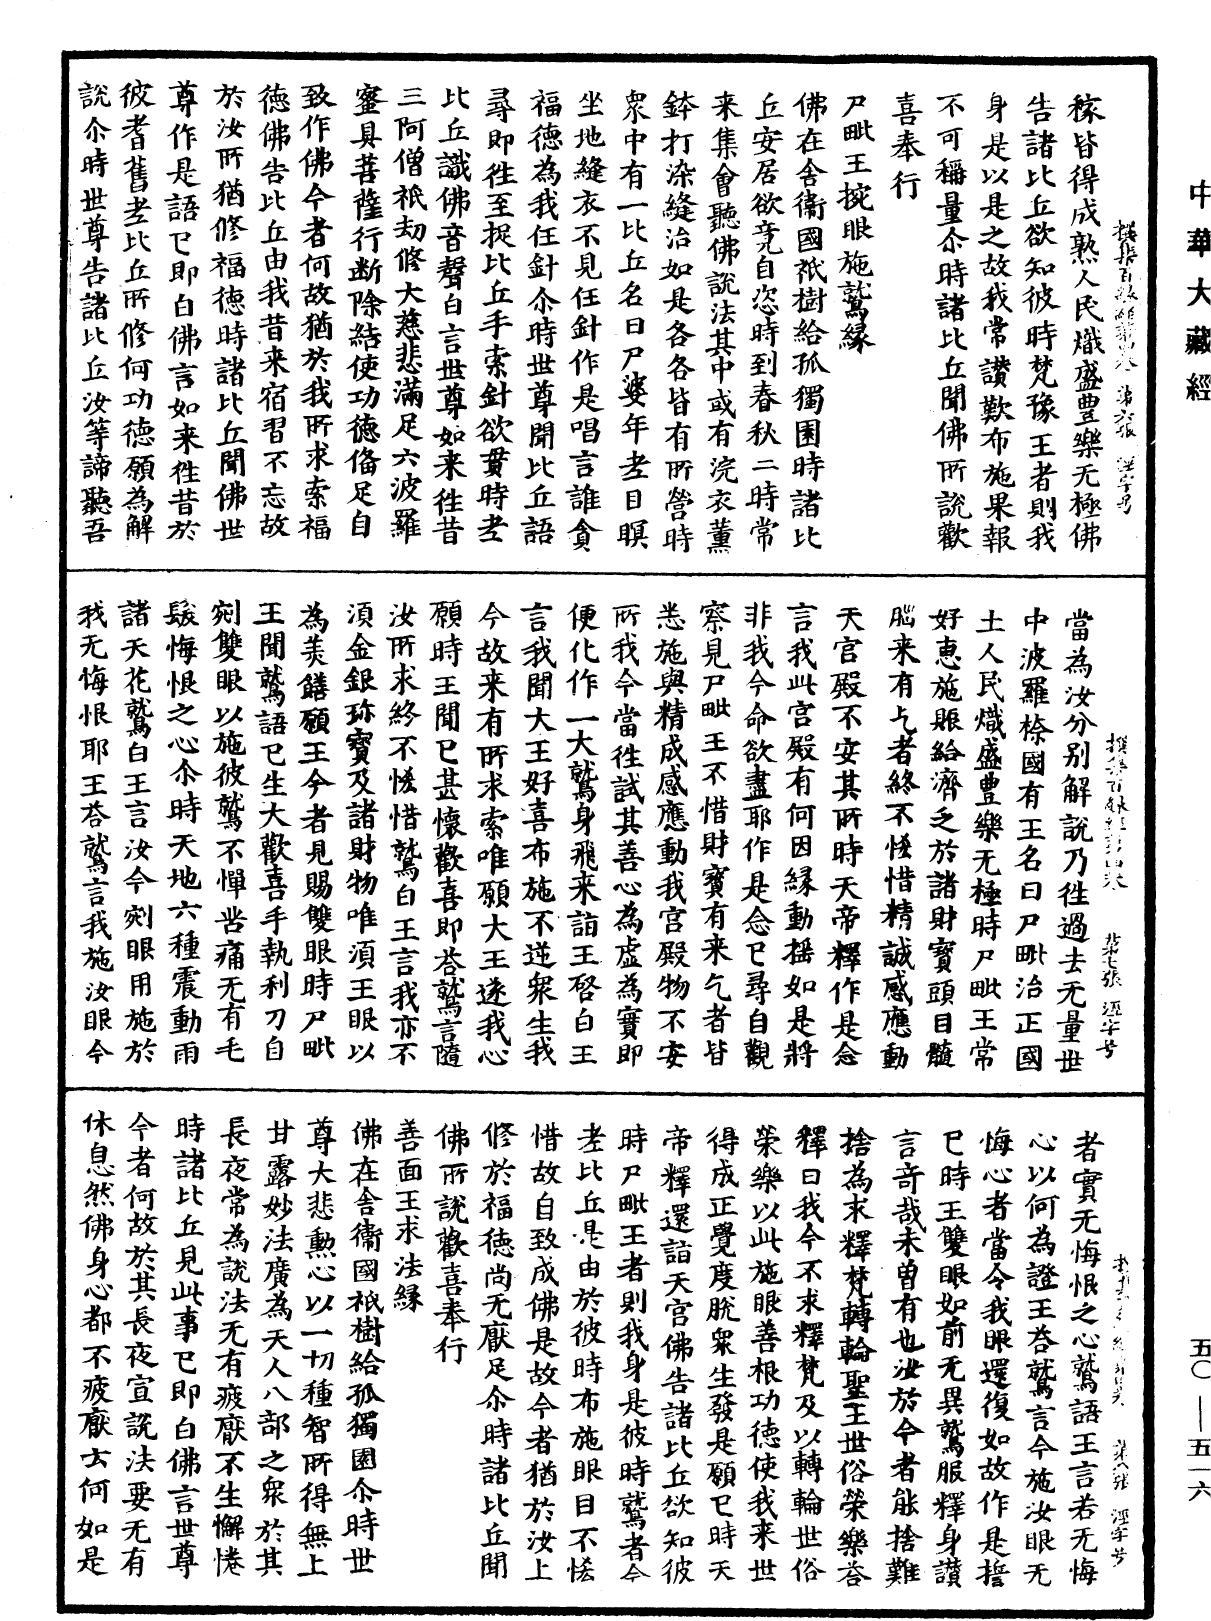 中華大藏經
稼皆得成熟人民熾盛豊樂无極佛
告諸比丘欲知彼時梵豫王者則我
身是以是之故我常讚歎布施果報
不可稱量尒時諸比丘聞佛所說歡
喜奉行
尸毗王捥眼施鷲緣
佛在舍衞國祇樹給孤獨園時諸比
丘安居欲竟自恣時到春秋二時常
来集會聽佛說法其中或有浣衣薰
鉢打染縫治如是各各皆有所營時
衆中有一比丘名曰尸婆年老目瞑
坐地縫衣不見任針作是唱言誰貪
福德為我任針尒時世尊聞比丘語
尋即徃至捉比丘手索針欲貫時老
比丘識佛音聲白言世尊如来徃昔
三阿僧祇劫修大慈悲滿足六波羅
蜜具菩薩行斷除結使功德俻足自
致作佛今者何故猶於我所求索福
德佛告比丘由我昔来宿習不忘故
於汝所猶修福德時諸比丘聞佛世
尊作是語已即白佛言如来徃昔於
彼耆舊老比丘所修何功德願為解
說尒時世尊告諸比丘汝等諦聽吾
撰集百緣經第四卷 第七張 涇字号
當為汝分別解說乃徃過去无量世
中波羅㮈國有王名曰尸毗治正國
土人民熾盛豊樂无極時尸毗王常
好惠施賑給濟乏於諸財寶頭目髓
腦来有乞者終不悋惜精誠感應動
天宮殿不安其所時天帝釋作是念
言我此宮殿有何因緣動摇如是將
非我今命欲盡耶作是念已尋自觀
察見尸毗王不惜財寶有来乞者皆
悉施與精成感應動我宮殿物不安
所我今當徃試其善心為虛為實即
便化作一大鷲身飛来詣王啓白王
言我聞大王好喜布施不逆衆生我
今故来有所求索唯願大王遂我心
願時王聞已甚懷歡喜即荅鷲言隨
汝所求終不悋惜鷲白王言我亦不
湏金銀珎寶及諸財物唯湏王眼以
為美饍願王今者見賜雙眼時尸毗
王聞鷲語已生大歡喜手執利刀自
剜雙眼以施彼鷲不憚苦痛无有毛
髮悔恨之心尒時天地六種震動雨
諸天花鷲白王言汝今剜眼用施於
我无悔恨耶王荅鷲言我施汝眼今
者實无悔恨之心鷲語王言若无悔
心以何為證王荅鷲言今施汝眼无
悔心者當令我眼還復如故作是誓
已時王雙眼如前无異鷲服釋身讚
言竒哉未曾有也汝於今者能捨難
捨為求釋梵轉輪聖王世俗榮樂荅
釋曰我今不求釋梵及以轉輪世俗
榮樂以此施眼善根功德使我来世
得成正覺度脫衆生發是願已時天
帝釋還詣天宮佛告諸比丘欲知彼
時尸毗王者則我身是彼時鷲者今
老比丘是由於彼時布施眼目不悋
惜故自致成佛是故今者猶於汝上
修於福德尚无厭足尒時諸比丘聞
佛所說歡喜奉行
善面王求法緣
佛在舍衞國祇樹給孤獨園尒時世
尊大悲勲心以一切種智所得無上
甘露妙法廣為天人八部之衆於其
長夜常為說法无有疲厭不生懈惓
時諸比丘見此事已即白佛言世尊
今者何故於其長夜宣說法要无有
休息然佛身心都不疲厭云何如是
五〇—五一六